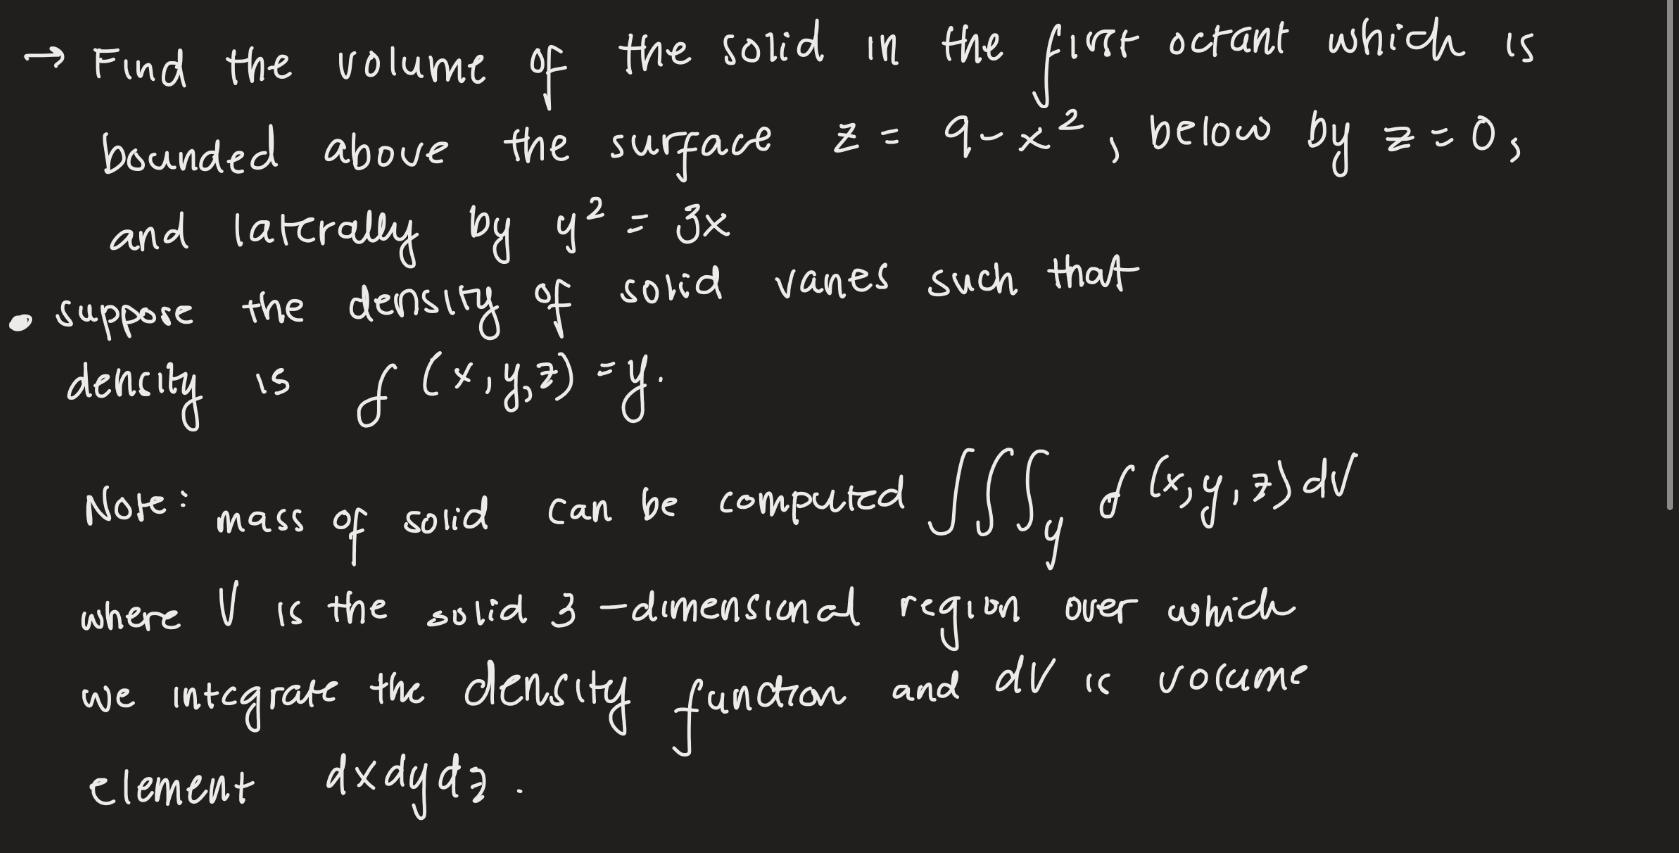 → Find the volume of the solid in the first octant which is
bounded above the surface z = 9 - x², below by z = 0,
and laterally by y² = 3x
• suppose the density of solid varies such that
density is f (x, y, z) = y.
Note: mass of solid can be computed ∭_y f (x, y, z) dV
where V is the solid 3 - dimensional region over which
we integrate the density function and dV is volume
element dxdydz.